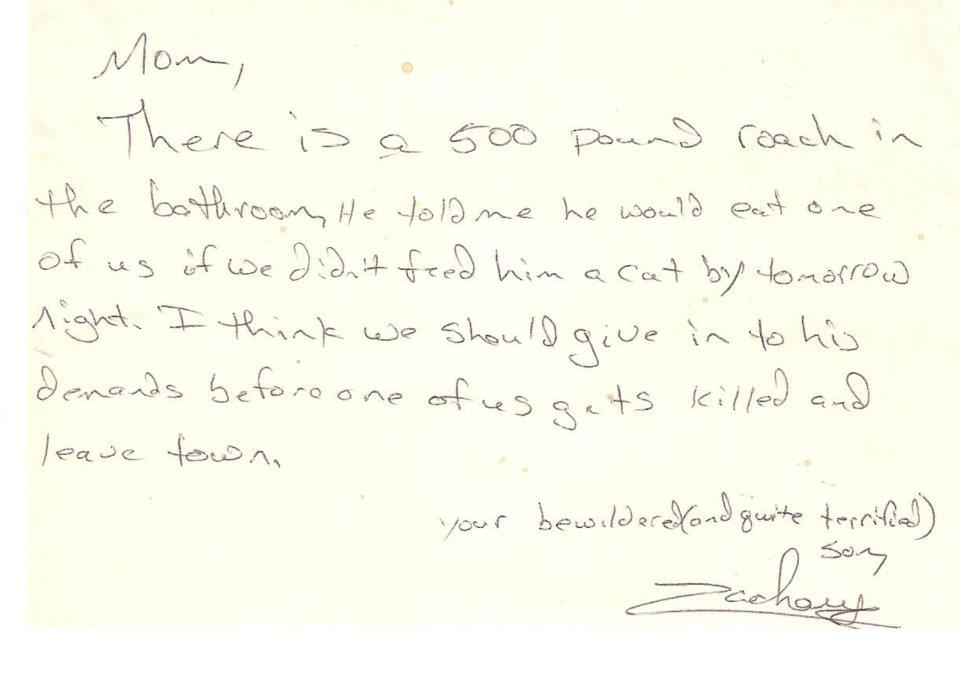 Mom,
There is a 500 pound roach in
the bathroom, He told me he would eat one
of us if we didn't feed him a cat by tomorrow
night. I think we should give in to his
demands before one of us gets killed and
leave town.
your bewildered (and quite terrified)
son,
Zachary